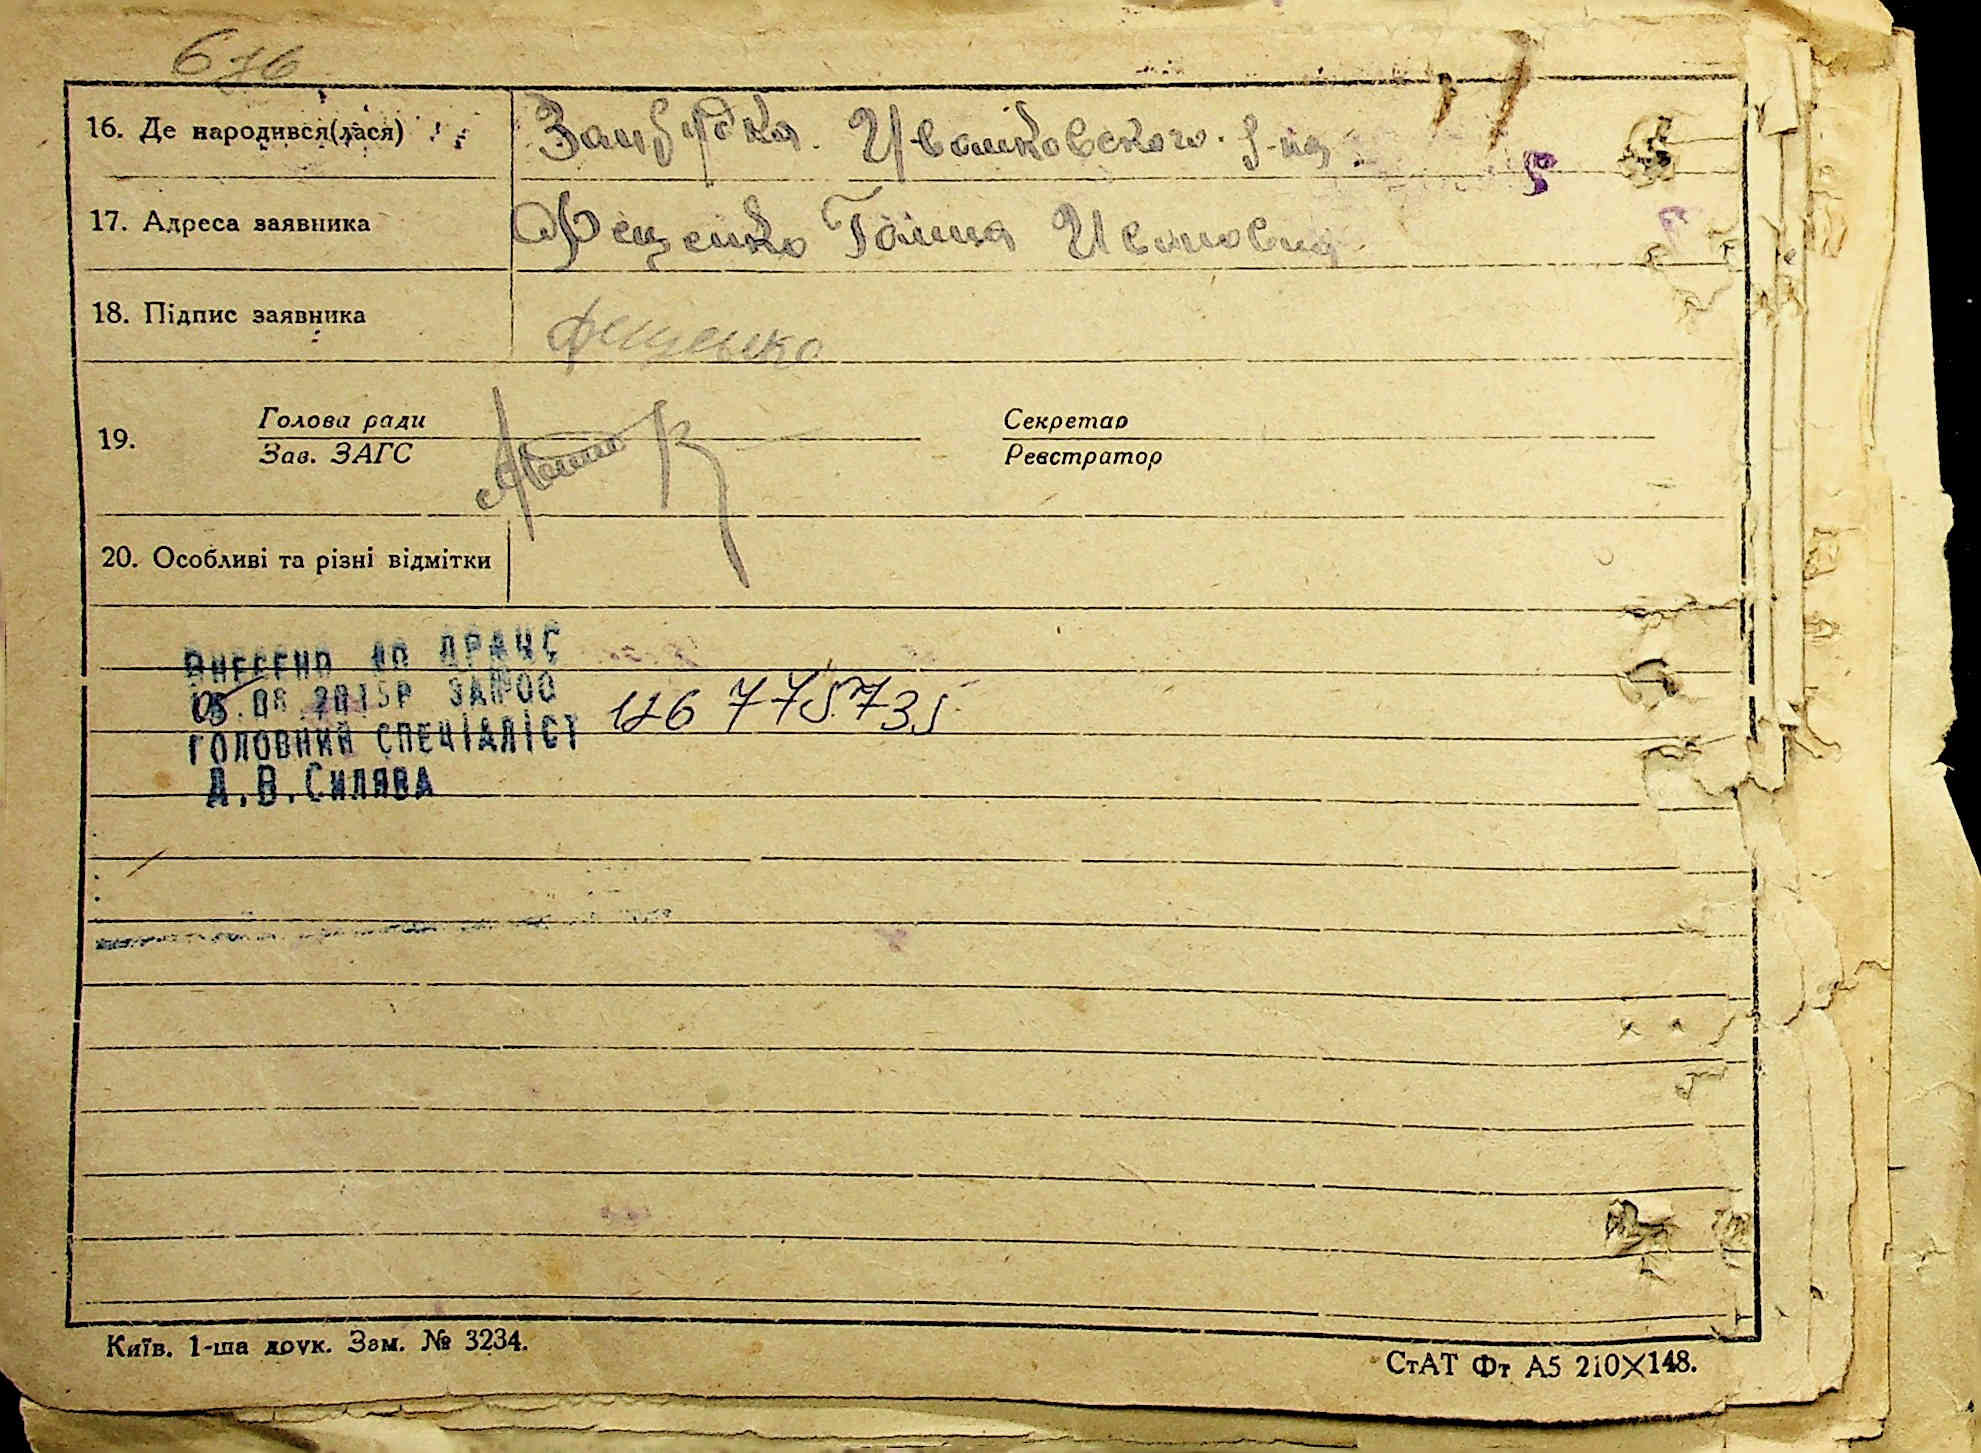 676
16. Де народився(лася) Ивонковского р-на
17. Адреса заявника Фещенко Галина Ивановна
18. Підпис заявника Фещенко
19. Голова ради Секретар
Зав. ЗАГС Реєстратор
20. Особливі та різні відмітки
ВНЕСЕНО ДО ДРАЦС
05.08.2015Р ЗАПОО 126 775735
ГОЛОВНИЙ СПЕЦІАЛІСТ
Д.В.Силява
Київ. 1-ша друк. Зам. № 3234.
СтАТ Фт А5 210×148.